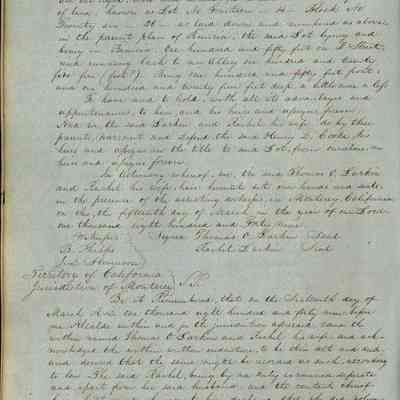 of land, known as Lot No. Fourteen - 14 - Block No
Twenty six - 26 - as laid down and numbered as above
in the parent plan of Benicia, the said Lot lying and
being in Benicia, One hundred and fifty feet on F Street,
and running back to an Alley one hundred and twenty
five feet (feet). Being one hundred and fifty feet front,
and one hundred and twenty five feet deep, a little more or less
To have and to hold, with all its advantages and
appurtenances, to him and his heirs and assigns forever
And we the said Larkin, and Rachel his wife, do by these
presents, warrant and defend the said Henry D. Cooke, his
heirs and assigns in the title to said Lot, from ourselves, our
heirs and assigns forever.
In testimony whereof, we, the said Thomas O. Larkin
and Rachel his wife, have hereunto set our hands and seals,
in the presence of the attesting witnesses, in Monterey, California
on this, the fifteenth day of March, in the year of our Lord
one thousand eight hundred and Forty nine.
Witnesses Signed Thomas O. Larkin Seal
B. Phelps Rachel Larkin Seal
Territory of California
Jurisdiction of Monterey SS.
Be it Remembered, that on the Sixteenth day of
March A.D. one thousand eight hundred and forty nine, before
me Alcalde within and for the jurisdiction aforesaid, came the
within named Thomas O Larkin and Rachel his wife and ack-
nowledged the within written indenture, to be their act and deed,
and desired that the same might be recorded as such, according
to law. The said Rachel, being by me duly examined separate
and apart from her said husband, and the contents thereof